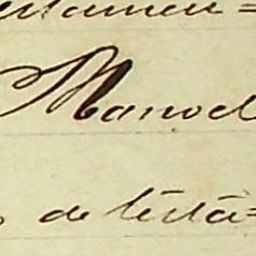 estamen=
Manoel
de testa=